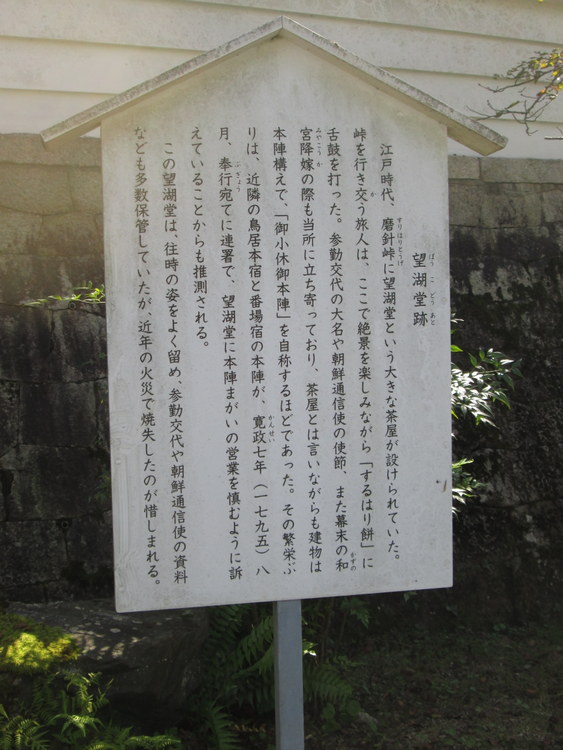 望湖堂跡
ぼうこどうあと
江戸時代、磨針峠に望湖堂という大きな茶屋が設けられていた。
すりはりとうげ
峠を行き交う旅人は、ここで絶景を楽しみながら「するはり餅」に
か
舌鼓を打った。参勤交代の大名や朝鮮通信使の使節、また幕末の和
かずの
宮降嫁の際も当所に立ち寄っており、茶屋とは言いながらも建物は
みやこうか
本陣構えで、「御小休御本陣」を自称するほどであった。その繁栄ぶ
りは、近隣の鳥居本宿と番場宿の本陣が、寛政七年（一七九五）八
かんせい
月、奉行宛てに連署で、望湖堂に本陣まがいの営業を慎むように訴
ぶぎょう
えていることからも推測される。
この望湖堂は、往時の姿をよく留め、参勤交代や朝鮮通信使の資料
なども多数保管していたが、近年の火災で焼失したのが惜しまれる。